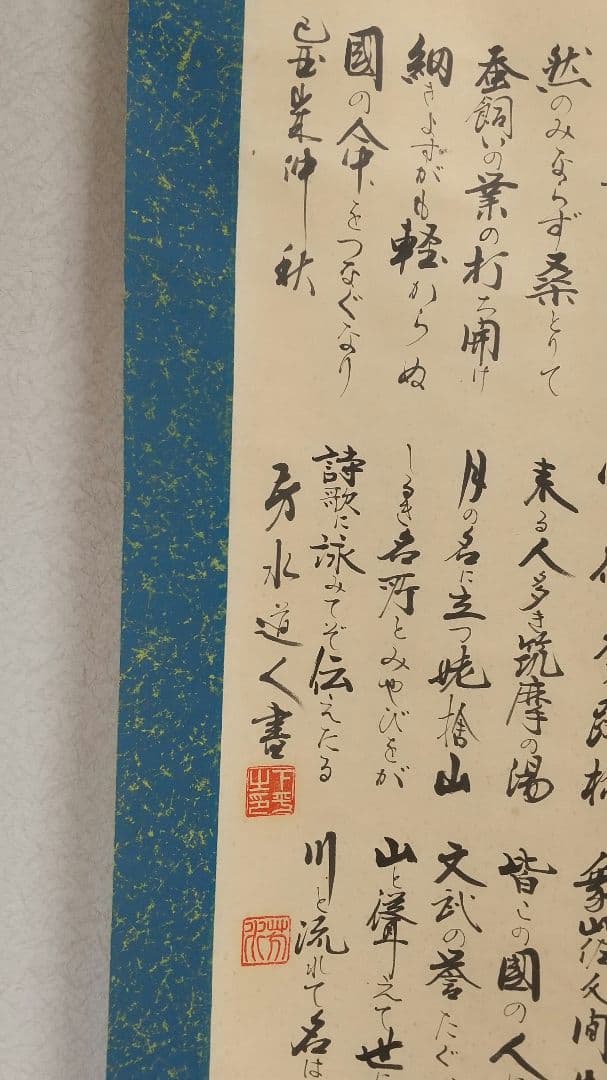 然のみならず桑とりて
蚕飼いの業の打ち開け
細きよすがも軽からぬ
國の命をつなぐなり
己丑歳仲秋
来る人多き筑摩の湯
月の名に立つ姥捨山
しるき名所とみやびをが
詩歌に詠みてぞ伝えたる
芳水道人書
下平之印
象山佐久間
皆この國の人
文武の誉たぐ
山と聳えて世に
川と流れて名は
芳水